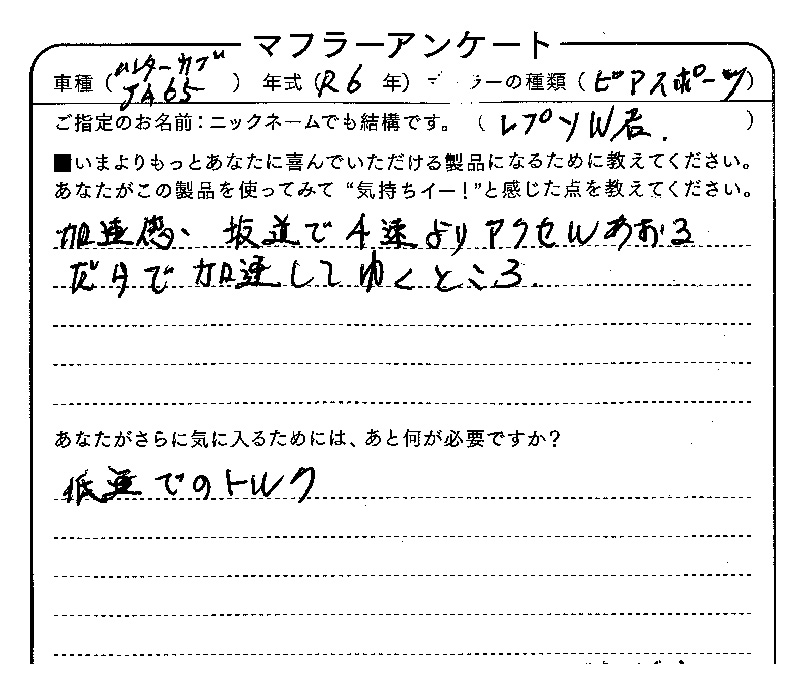 マフラーアンケート
車種(ハンターカブ JA65) 年式(R6年) マフラーの種類(ピアスポーツ)
ご指定のお名前:ニックネームでも結構です。(レプソル君.)
■いまよりもっとあなたに喜んでいただける製品になるために教えてください。
あなたがこの製品を使ってみて“気持ちイー!”と感じた点を教えてください。
加速感、坂道で4速よりアクセルあおる
だけで加速してゆくところ.
あなたがさらに気に入るためには、あと何が必要ですか?
低速でのトルク